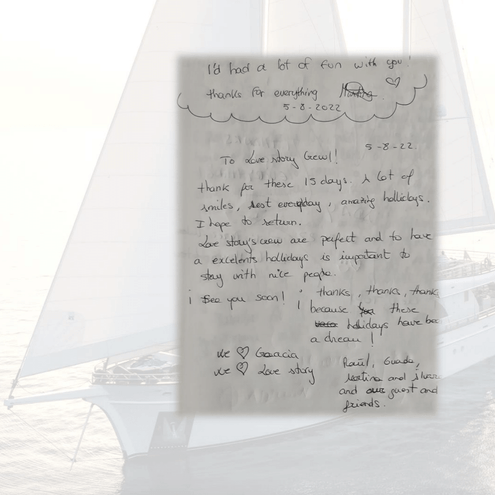 I'd had a lot of fun with you!
thanks for everything
5-8-2022
5-8-22.
To Love story Crew!!
thank for these 15 days. A lot of
smiles, rest everyday, amazing hollidays.
I hope to return.
Love story's crew are perfect and to have
a excelents hollidays is important to
stay with nice people.
¡ See you soon! ¡ thanks, thanks, thanks
because these
hollidays have be
a dream!
We ♡ Goracia
we ♡ Love story
Raúl, Guada,
Martina and
and our guest and
friends.